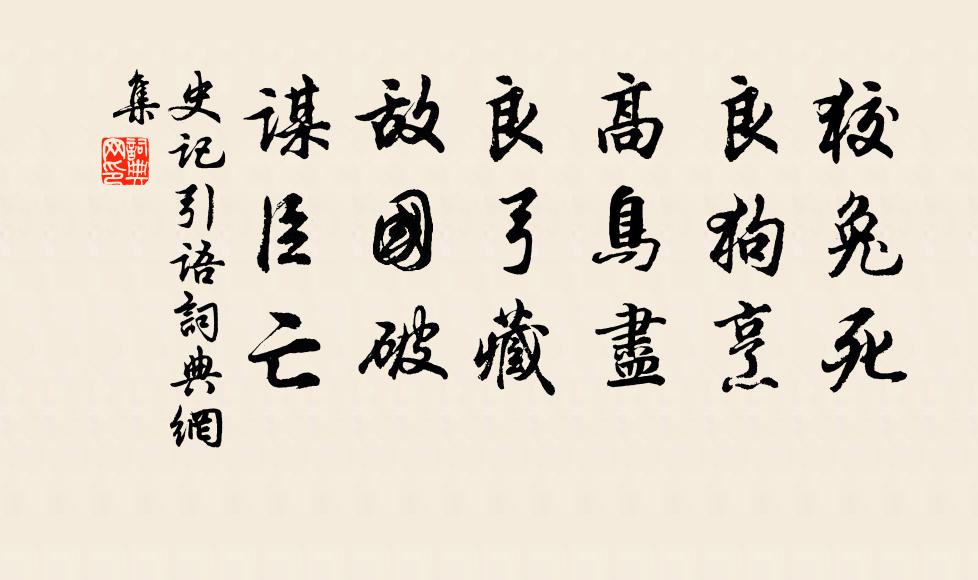 狡兔死
良狗烹
高鳥盡
良弓藏
敌國破
謀臣亡
史记引语詞典網
集
詞典
网印